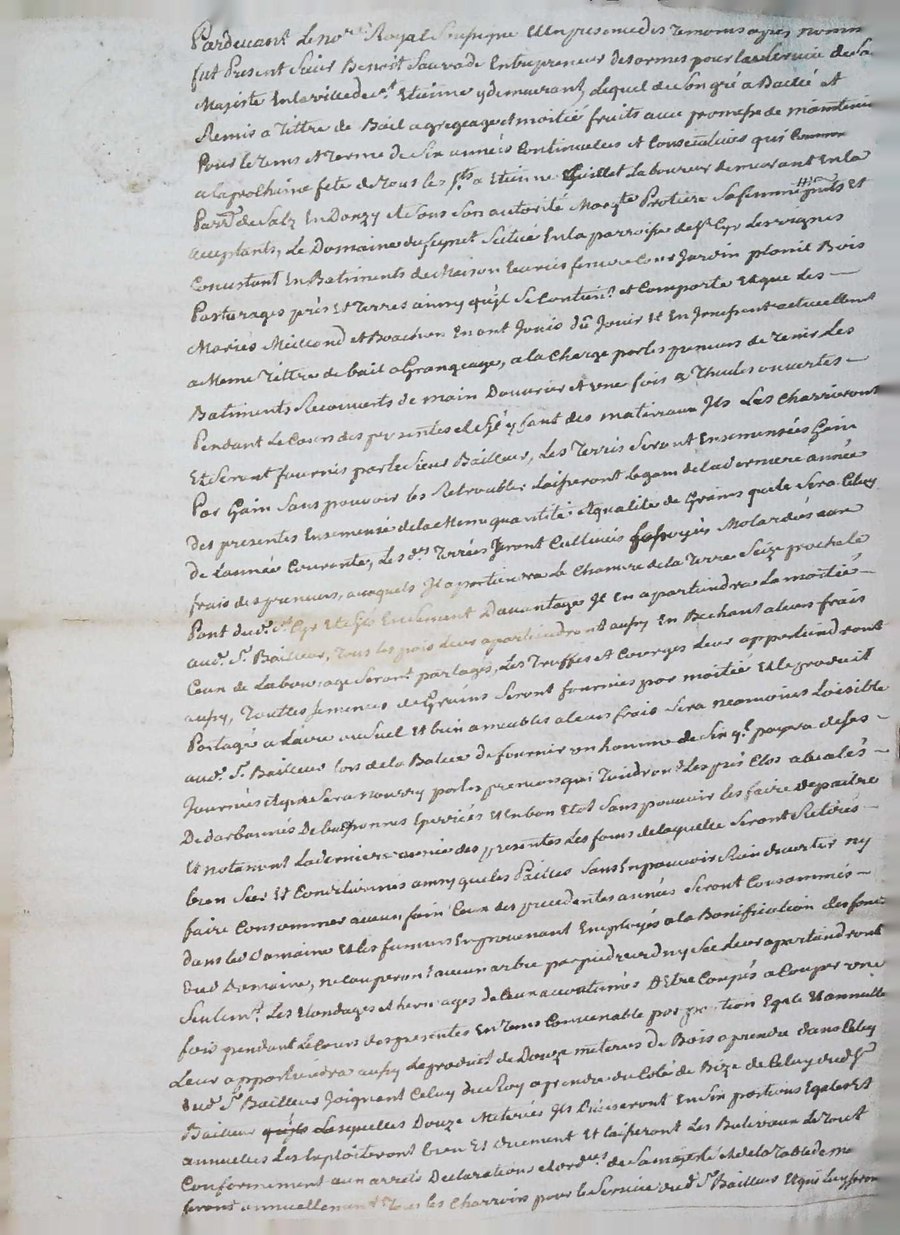 Pardevant Le no.re Royal Soussigné En presence des Temoins apres nommés
fut Present Sieur Benoit Sauvade Entrepreneur des armes pour Le Service de Sa
Majesté En la ville de St Etienne y demeurant, Lequel de Son gré a Baillé et
Remis a Tittre de Bail a grangeage et moitié fruits avec promesse de maintenir
Pour le tems et terme de Six années Continuelles et Consecutives qui Commen
a la prochaine fete de tous les Sts a Etienne Laboureur demurant En la
Parr.se de Salz En Donzy et Sous Son autorité Marg.te Protiere Sa femme
acceptants, Le Domaine du Situé En la parroisse de St Cyr Les vignes
Consistant En Batiments de Maison Ecuries Cour Jardin Bois
Pasturages prés Et Terres ainsy qu'il Se Contient et Comporte Et que Les
Mariés et En ont Jouis dû Jouir Et En Jouissent actuellement
a Meme Tittre de bail a Grangeage, a la Charge par les preneurs de Tenir Les
Batiments Recouverts de main D'ouvrier et une fois a Thuiles ouvertes
Pendant Le Cours des presentes et S'il y faut des materiaux Ils Les Charrieront
Et Seront fournis par le Sieur Bailleur, Les Terres Seront Ensemensées Gain
Par Gain Sans pouvoir les Retroubler Laisseront Le gain de la derniere année
des presentes Ensemensé de la Meme quantité et qualité de Grains que le Sera Celuy
De L'année Courante, Les d.es Terres Seront Cultivées aux
frais des preneurs, auxquels Il apartiendra Le Chanvre de la Terre prochele
Pont du d. St Cyr Et S'ils En Sement Davantage Il En apartiendra La moitié
aud. Sr Bailleur, Tous les pois Leur apartiendront aussy En Bechant a leurs frais
Ceux de Labourage Seront partagés, Les Truffes et Courges Leur appartiendront
aussy, Touttes Semences de Grains Seront fournies par moitié Et Le produit
Partagé a L'aire au Suel Et bien ameublés a leurs frais Sera neamoins Loisible
aud. Sr Bailleur lors de la Batue de fournir un homme de payera de Ses
Journées et que Sera nourry par les preneurs qui Tiendront Les prés Clos
De Buissonnés Et En bon Etat Sans pouvoir les faire
Et notament La derniere année des presentes Les foins de laquelle Seront Retirés
bien Secs Et Conditionnés ainsy que les Pailles Sans En pouvoir Rien divertir ny
faire Consommer aucun foin Ceux des precedentes années Seront Consommés
dans led. Domaine Et les fumiers En provenant Employés a la Bonification des fonds
dud. Domaine, ne Couperont aucun arbre par pied verd ny Sec Leur apartiendront
Seulem.t Les Elondages et hervages de Ceux accoutumés D'Etre Coupés a Couper une
fois pendant Le Cours des presentes En Tems Convenable par portion Egale Et annuelle
Leur appartiendra aussy Le produit de Douze meteres de Bois a prendre dans Celuy
dud. Sr Bailleur Joignant Celuy du Roy a prendre du Coté de Bize de Celuy dud. Sr
Bailleur Lesquelles Douze Meterées Ils Diviseront En Six portions Egales Et
annuelles Les Exploiteront bien Et Et laisseront Les Baliveaux Le Tout
Conformement aux arrets Declarations et ord.ces de Sa majesté et de la Table de
feront annuellement Tous les Charrois pour le Service dud. Sr Bailleur Et qui